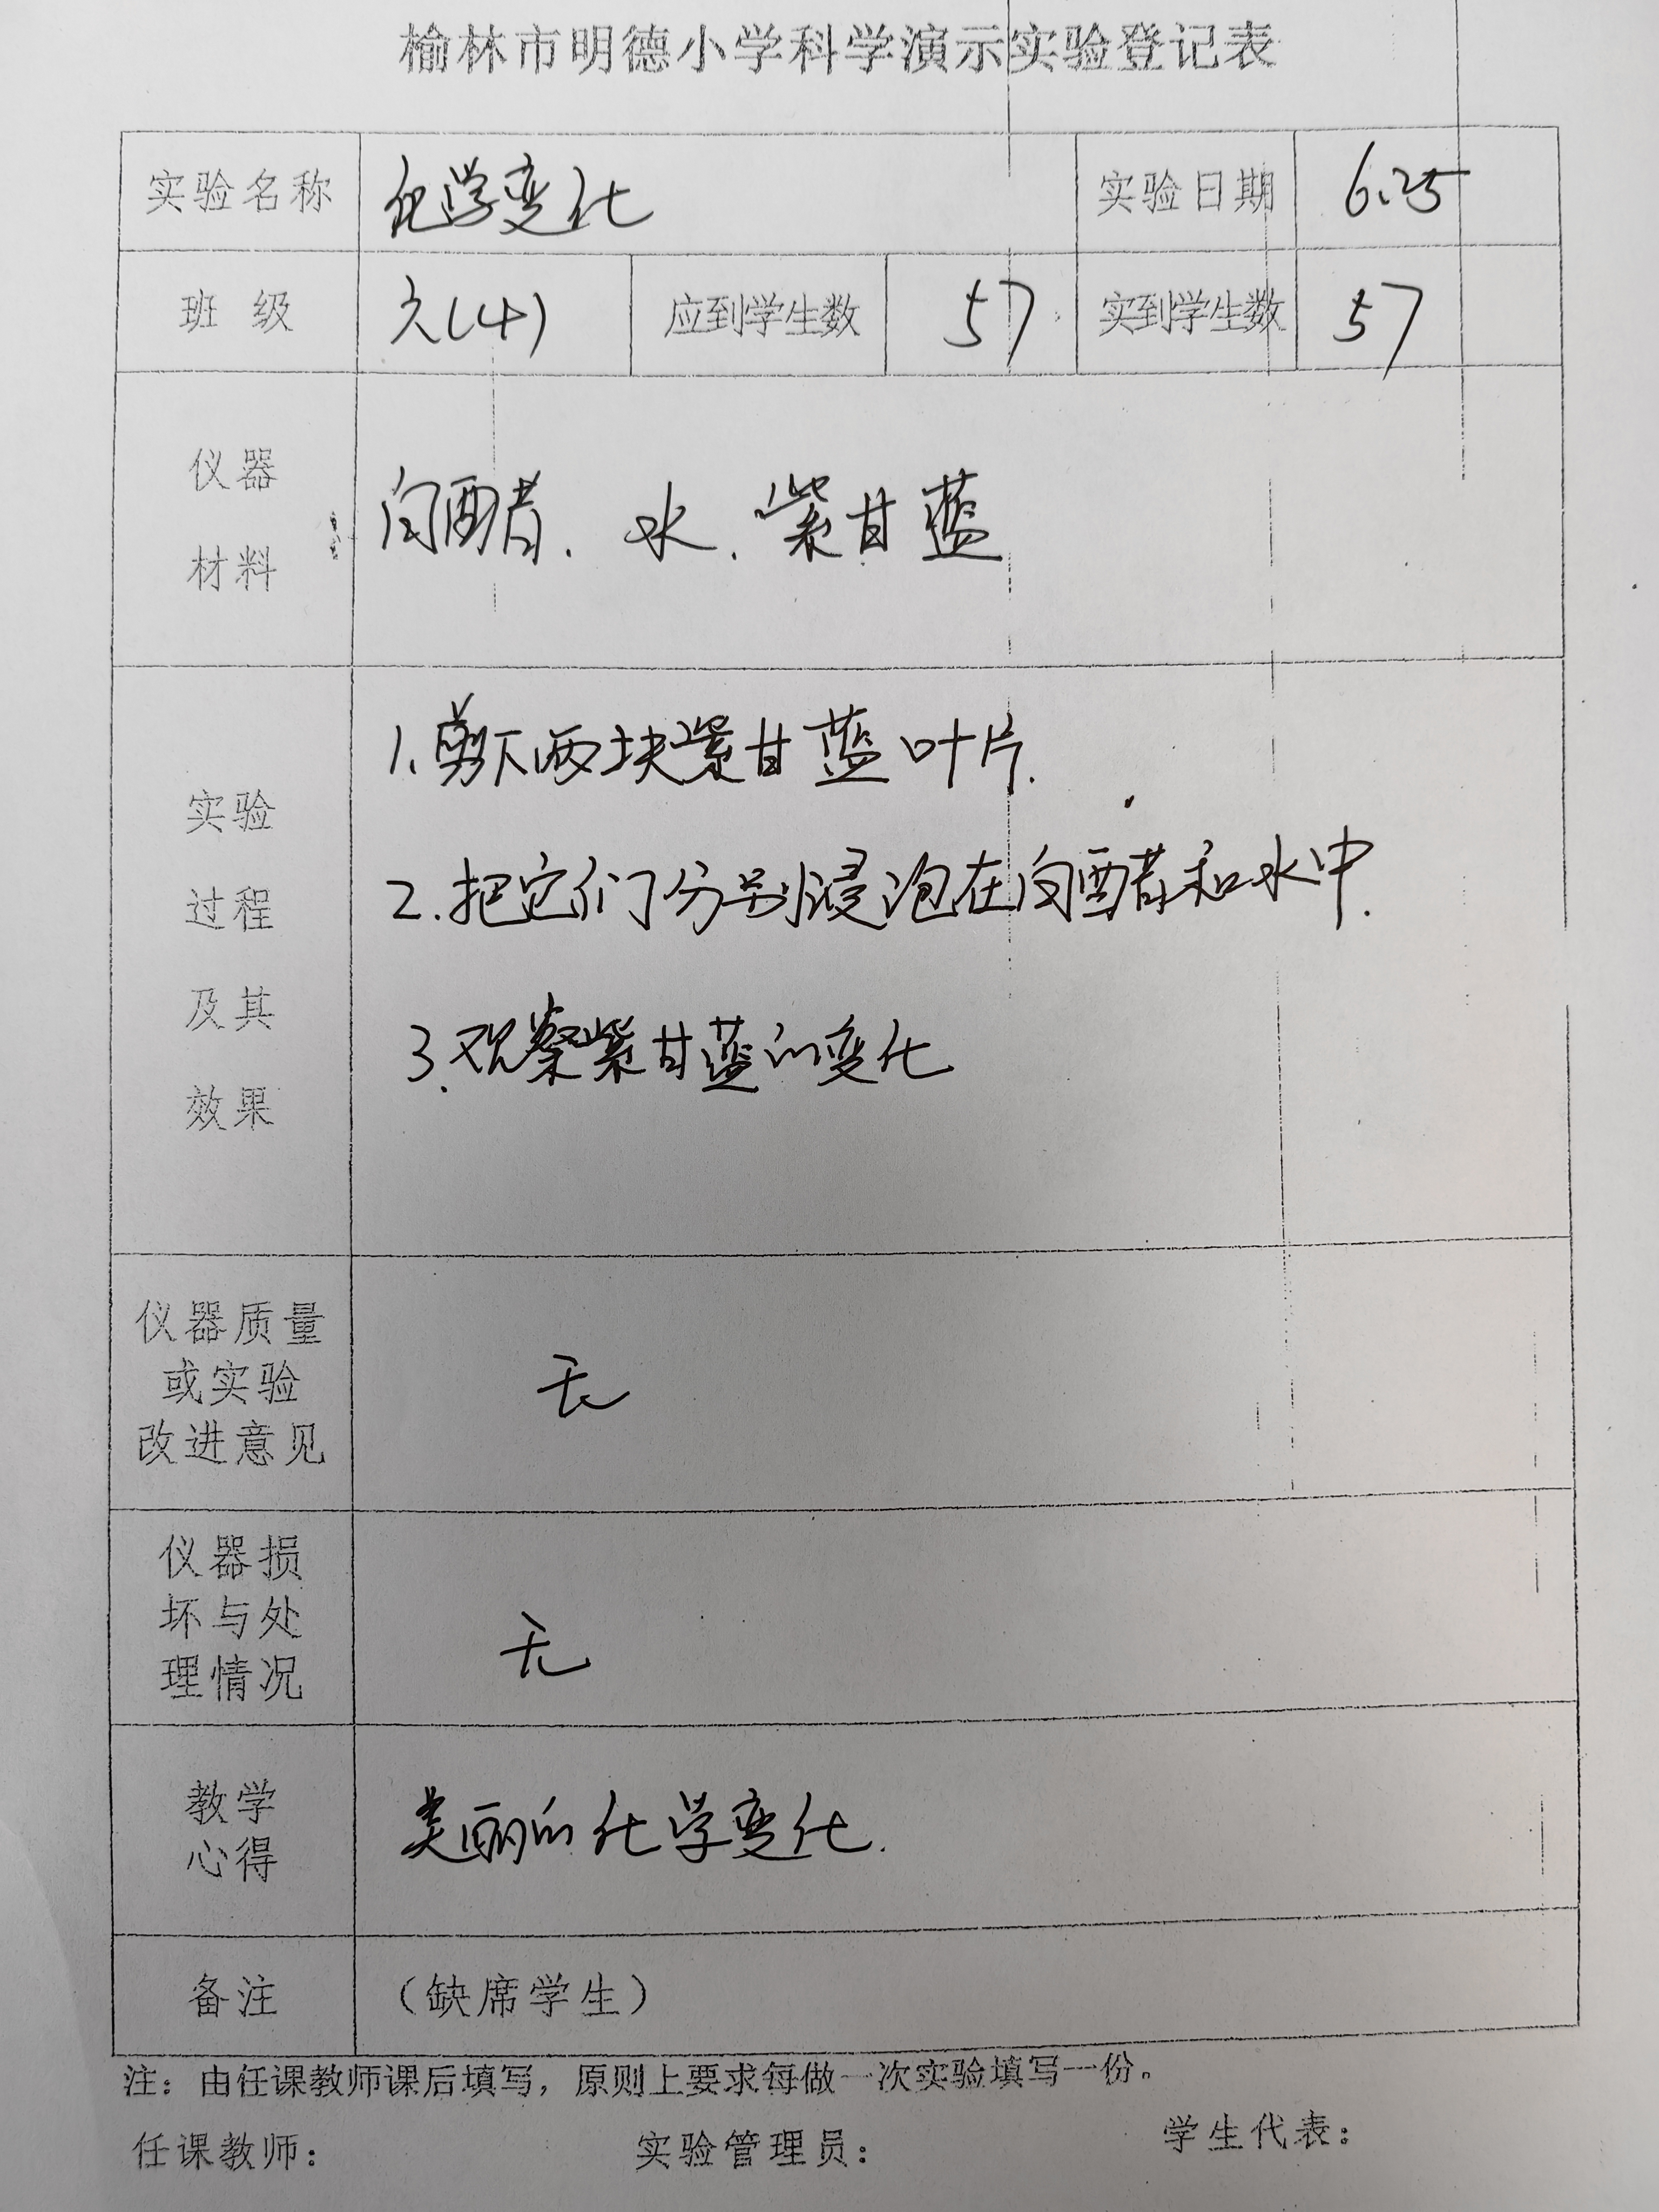 榆林市明德小学科学演示实验登记表
实验名称 化学变化 实验日期 6.25
班 级 六(4) 应到学生数 57 实到学生数 57
仪器
材料
白醋、水、紫甘蓝
实验
过程
及其
效果
1、剪下两块紫甘蓝叶片.
2.把它们分别浸泡在白醋和水中.
3.观察紫甘蓝的变化
仪器质量
或实验
改进意见
无
仪器损
坏与处
理情况
无
教学
心得
美丽的化学变化.
备注 （缺席学生）
注：由任课教师课后填写，原则上要求每做一次实验填写一份。
任课教师： 实验管理员： 学生代表：